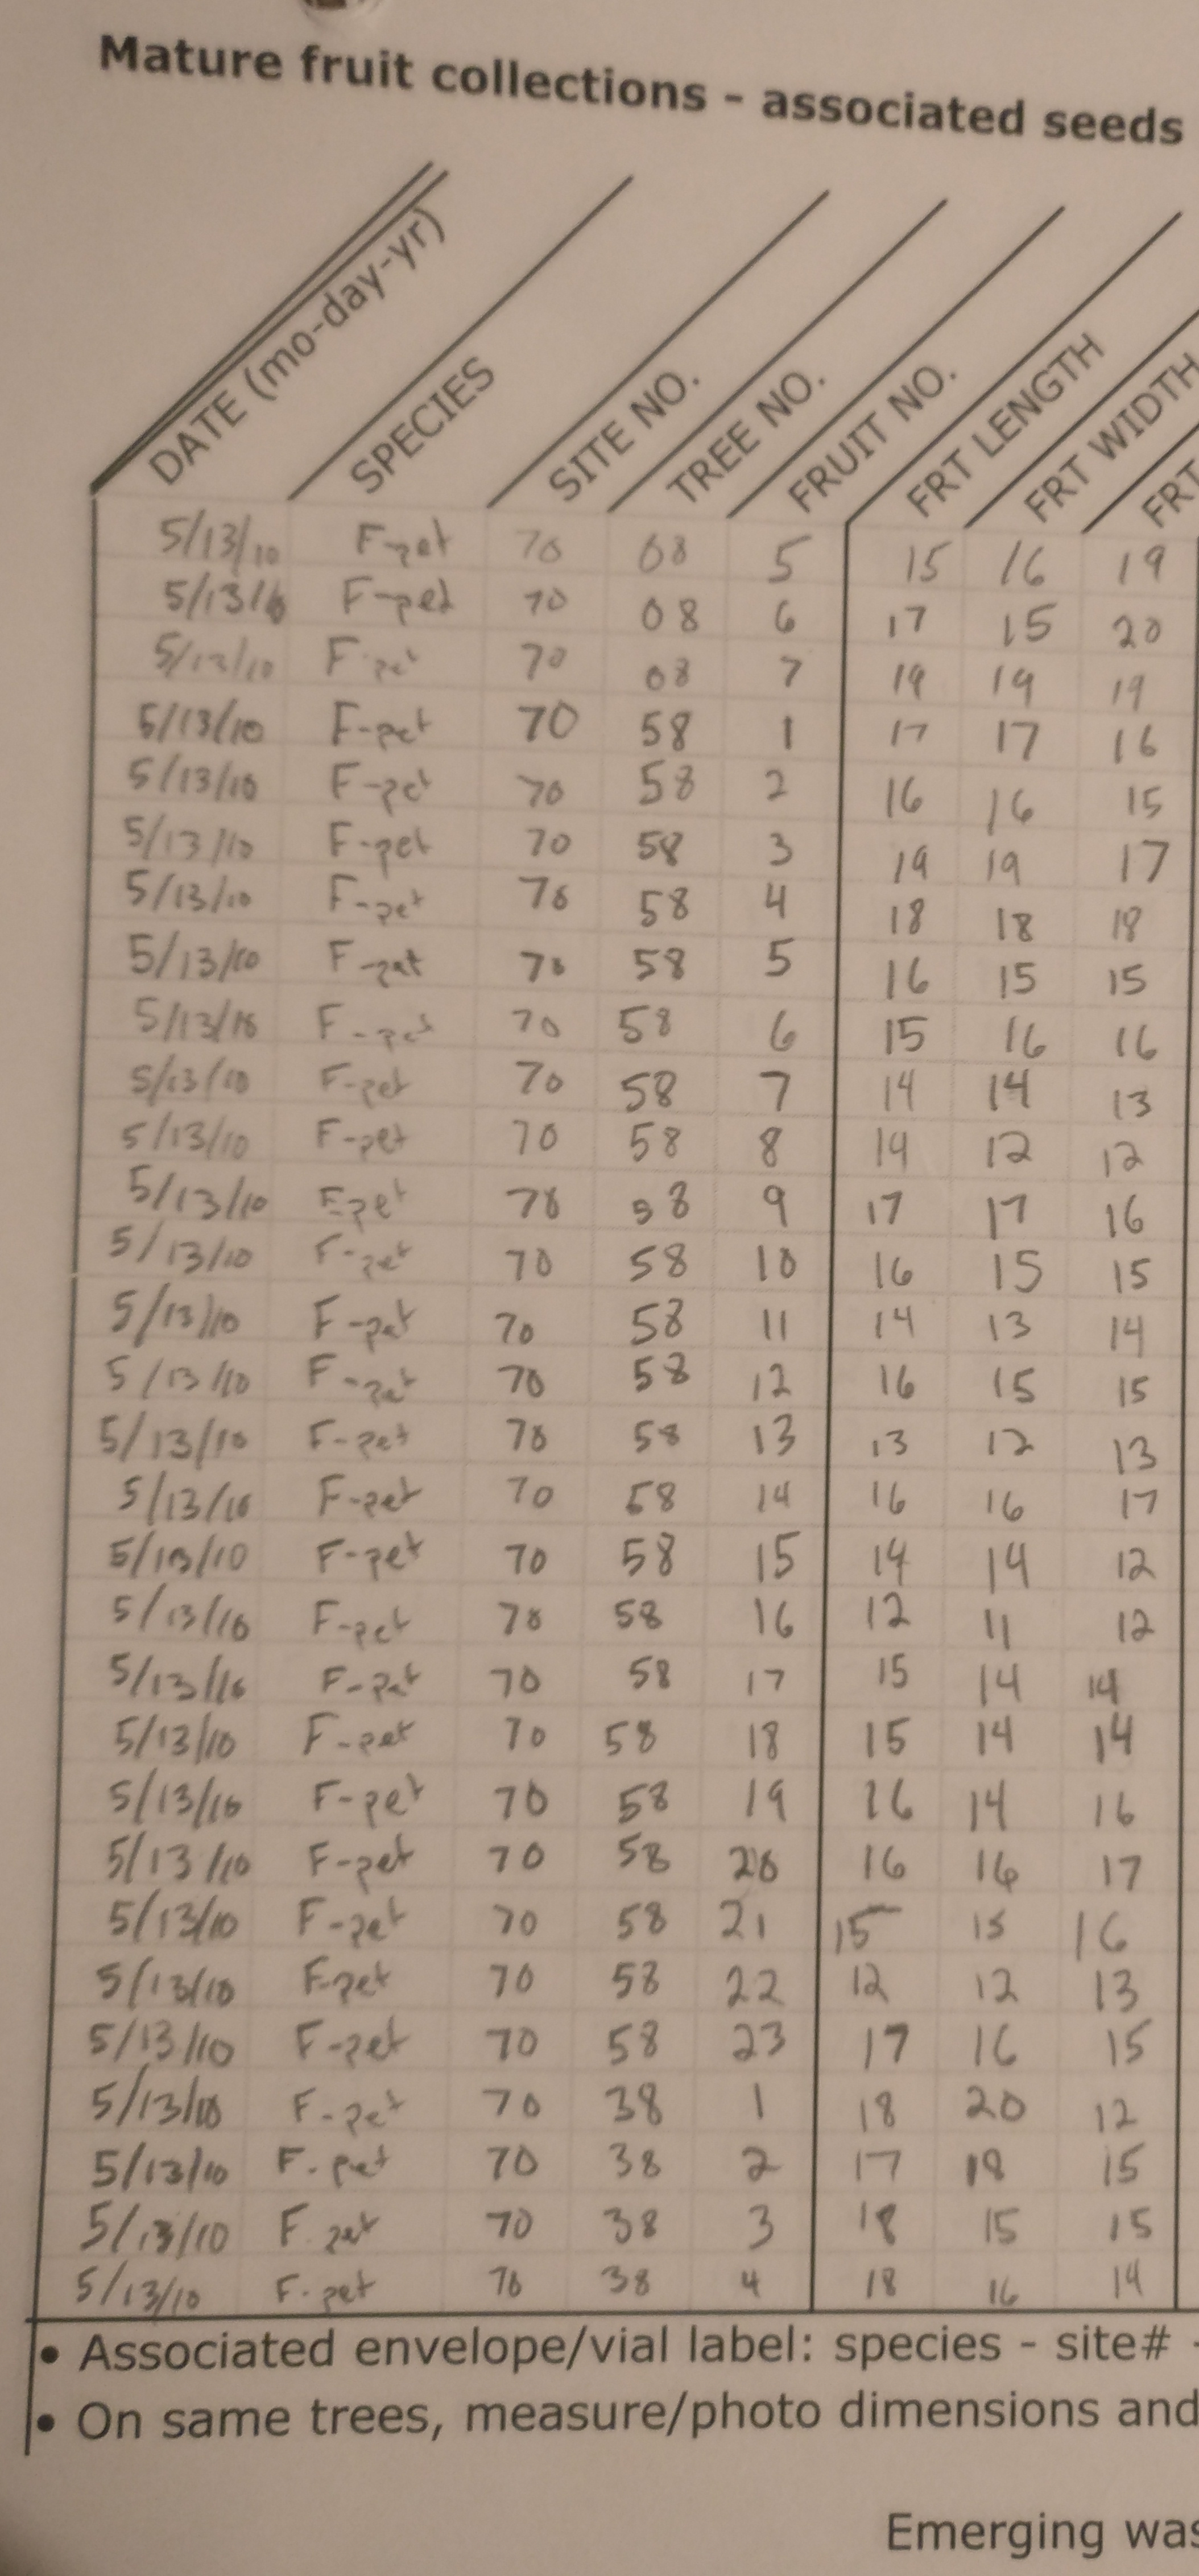 Mature fruit collections - associated seeds
DATE (mo-day-yr) SPECIES SITE NO. TREE NO. FRUIT NO. FRT LENGTH FRT WIDTH FRT
5/13/10 F-pet 70 08 5 15 16 19
5/13/10 F-pet 70 08 6 17 15 20
5/13/10 F-pet 70 08 7 19 19 19
5/13/10 F-pet 70 58 1 17 17 16
5/13/10 F-pet 70 58 2 16 16 15
5/13/10 F-pet 70 58 3 19 19 17
5/13/10 F-pet 70 58 4 18 18 18
5/13/10 F-pet 70 58 5 16 15 15
5/13/10 F-pet 70 58 6 15 16 16
5/13/10 F-pet 70 58 7 14 14 13
5/13/10 F-pet 70 58 8 14 12 12
5/13/10 F-pet 70 58 9 17 17 16
5/13/10 F-pet 70 58 10 16 15 15
5/13/10 F-pet 70 58 11 14 13 14
5/13/10 F-pet 70 58 12 16 15 15
5/13/10 F-pet 70 58 13 13 12 13
5/13/10 F-pet 70 58 14 16 16 17
5/13/10 F-pet 70 58 15 14 14 12
5/13/10 F-pet 70 58 16 12 11 12
5/13/10 F-pet 70 58 17 15 14 14
5/13/10 F-pet 70 58 18 15 14 14
5/13/10 F-pet 70 58 19 16 14 16
5/13/10 F-pet 70 58 20 16 16 17
5/13/10 F-pet 70 58 21 15 15 16
5/13/10 F-pet 70 58 22 12 12 13
5/13/10 F-pet 70 58 23 17 16 15
5/13/10 F-pet 70 38 1 18 20 12
5/13/10 F-pet 70 38 2 17 18 15
5/13/10 F-pet 70 38 3 18 15 15
5/13/10 F-pet 70 38 4 18 16 14
• Associated envelope/vial label: species - site# -
• On same trees, measure/photo dimensions and
Emerging was